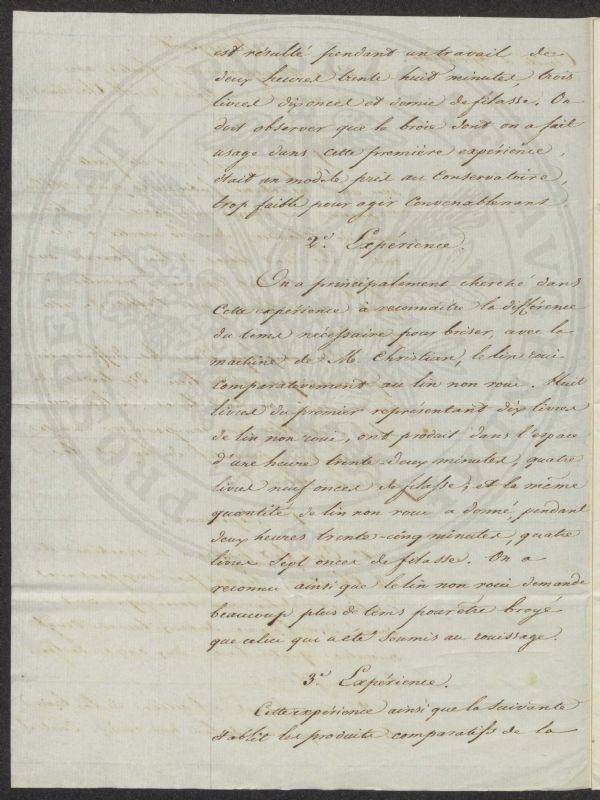 est résulté pendant un travail de
deux heures trente huit minutes, trois
livres dix onces et demie de filasse. On
doit observer que la broie dont on a fait
usage dans cette première expérience,
était un modèle pris au Conservatoire,
trop faible pour agir convenablement.
2e. Expérience.
On a principalement cherché dans
cette expérience à reconnaitre la différence
du tems nécessaire pour briser, avec la
machine de M. Christian, le lin roui
comparativement au lin non roui. Huit
livres du premier représentant dix livres
de lin non roui, ont produit dans l'espace
d'une heure trente deux minutes, quatre
livres neuf onces de filasse; et la même
quantité de lin non roui a donné, pendant
deux heures trente-cinq minutes, quatre
livres sept onces de filasse. On a
reconnu ainsi que le lin non roui demande
beaucoup plus de tems pour être broyé
que celui qui a été soumis au rouissage.
3e. Expérience.
Cette expérience ainsi que la suivante
établit les produits comparatifs de la